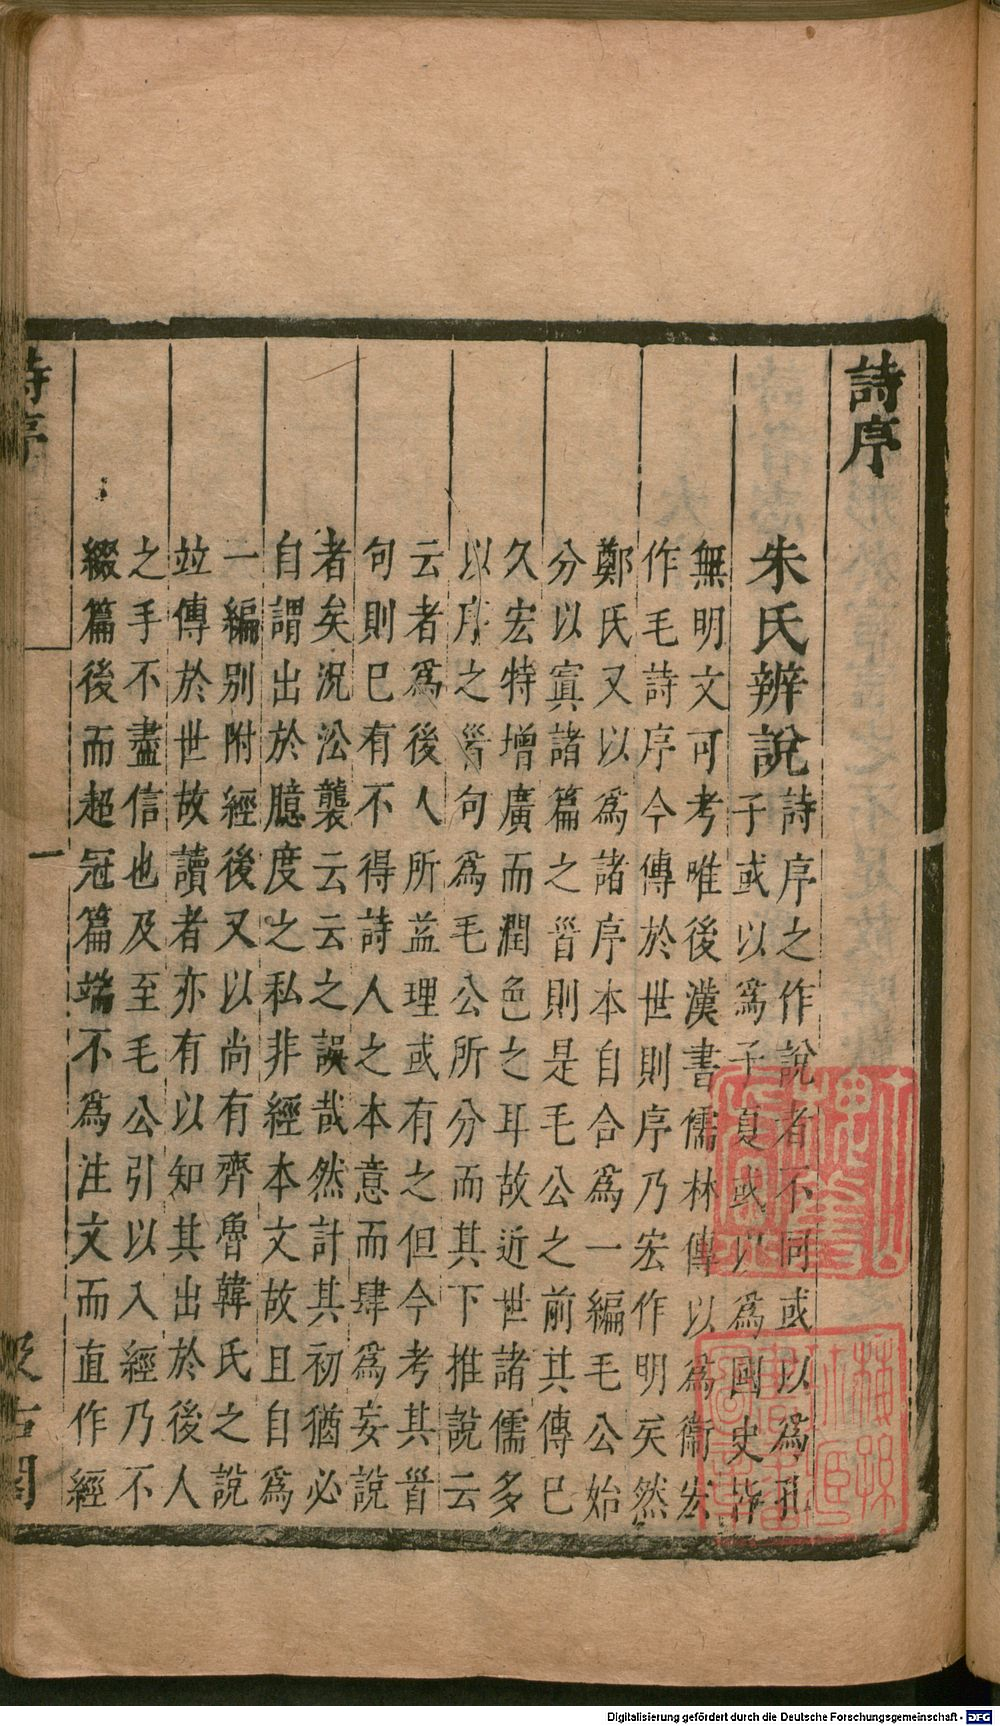 詩序
朱氏辨說
詩序之作說者不同或以為孔
子或以爲子夏或以爲國史皆
無明文可考唯後漢書儒林傳以爲衞宏
作毛詩序今傳於世則序乃宏作明矣然
鄭氏又以爲諸序本自合爲一編毛公始
分以寘諸篇之首則是毛公之前其傳已
久宏特增廣而潤色之耳故近世諸儒多
以序之首句爲毛公所分而其下推說云
云者爲後人所益理或有之但今考其首
句則已有不得詩人之本意而肆爲妄說
者矣況㳂襲云云之誤哉然計其初猶必
自謂出於臆度之私非經本文故且自爲
一編別附經後又以尚有齊魯韓氏之說
竝傳於世故讀者亦有以知其出於後人
之手不盡信也及至毛公引以入經乃不
綴篇後而超冠篇端不爲注文而直作經
詩序
一
汲古閣
Digitalisierung gefördert durch die Deutsche Forschungsgemeinschaft - DFG